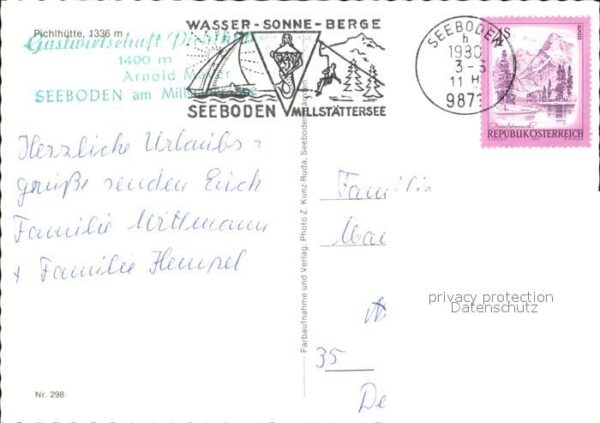 Pichlhütte, 1336 m
Gastwirtschaft Pichlhütte
1400 m
Arnold
SEEBODEN am Millstätter See
WASSER - SONNE - BERGE
SEEBODEN MILLSTÄTTERSEE
SEEBODEN
h
1980
3-5
11 H
987
4S
REPUBLIK ÖSTERREICH
Herzliche Urlaubs-
grüße senden Euch
Familie Wittmann
+ Familie Hempel
Farbaufnahme und Verlag: Photo Z Kunz-Ruda, Seeboden
Famili
35
De
privacy protection
Datenschutz
Nr. 298